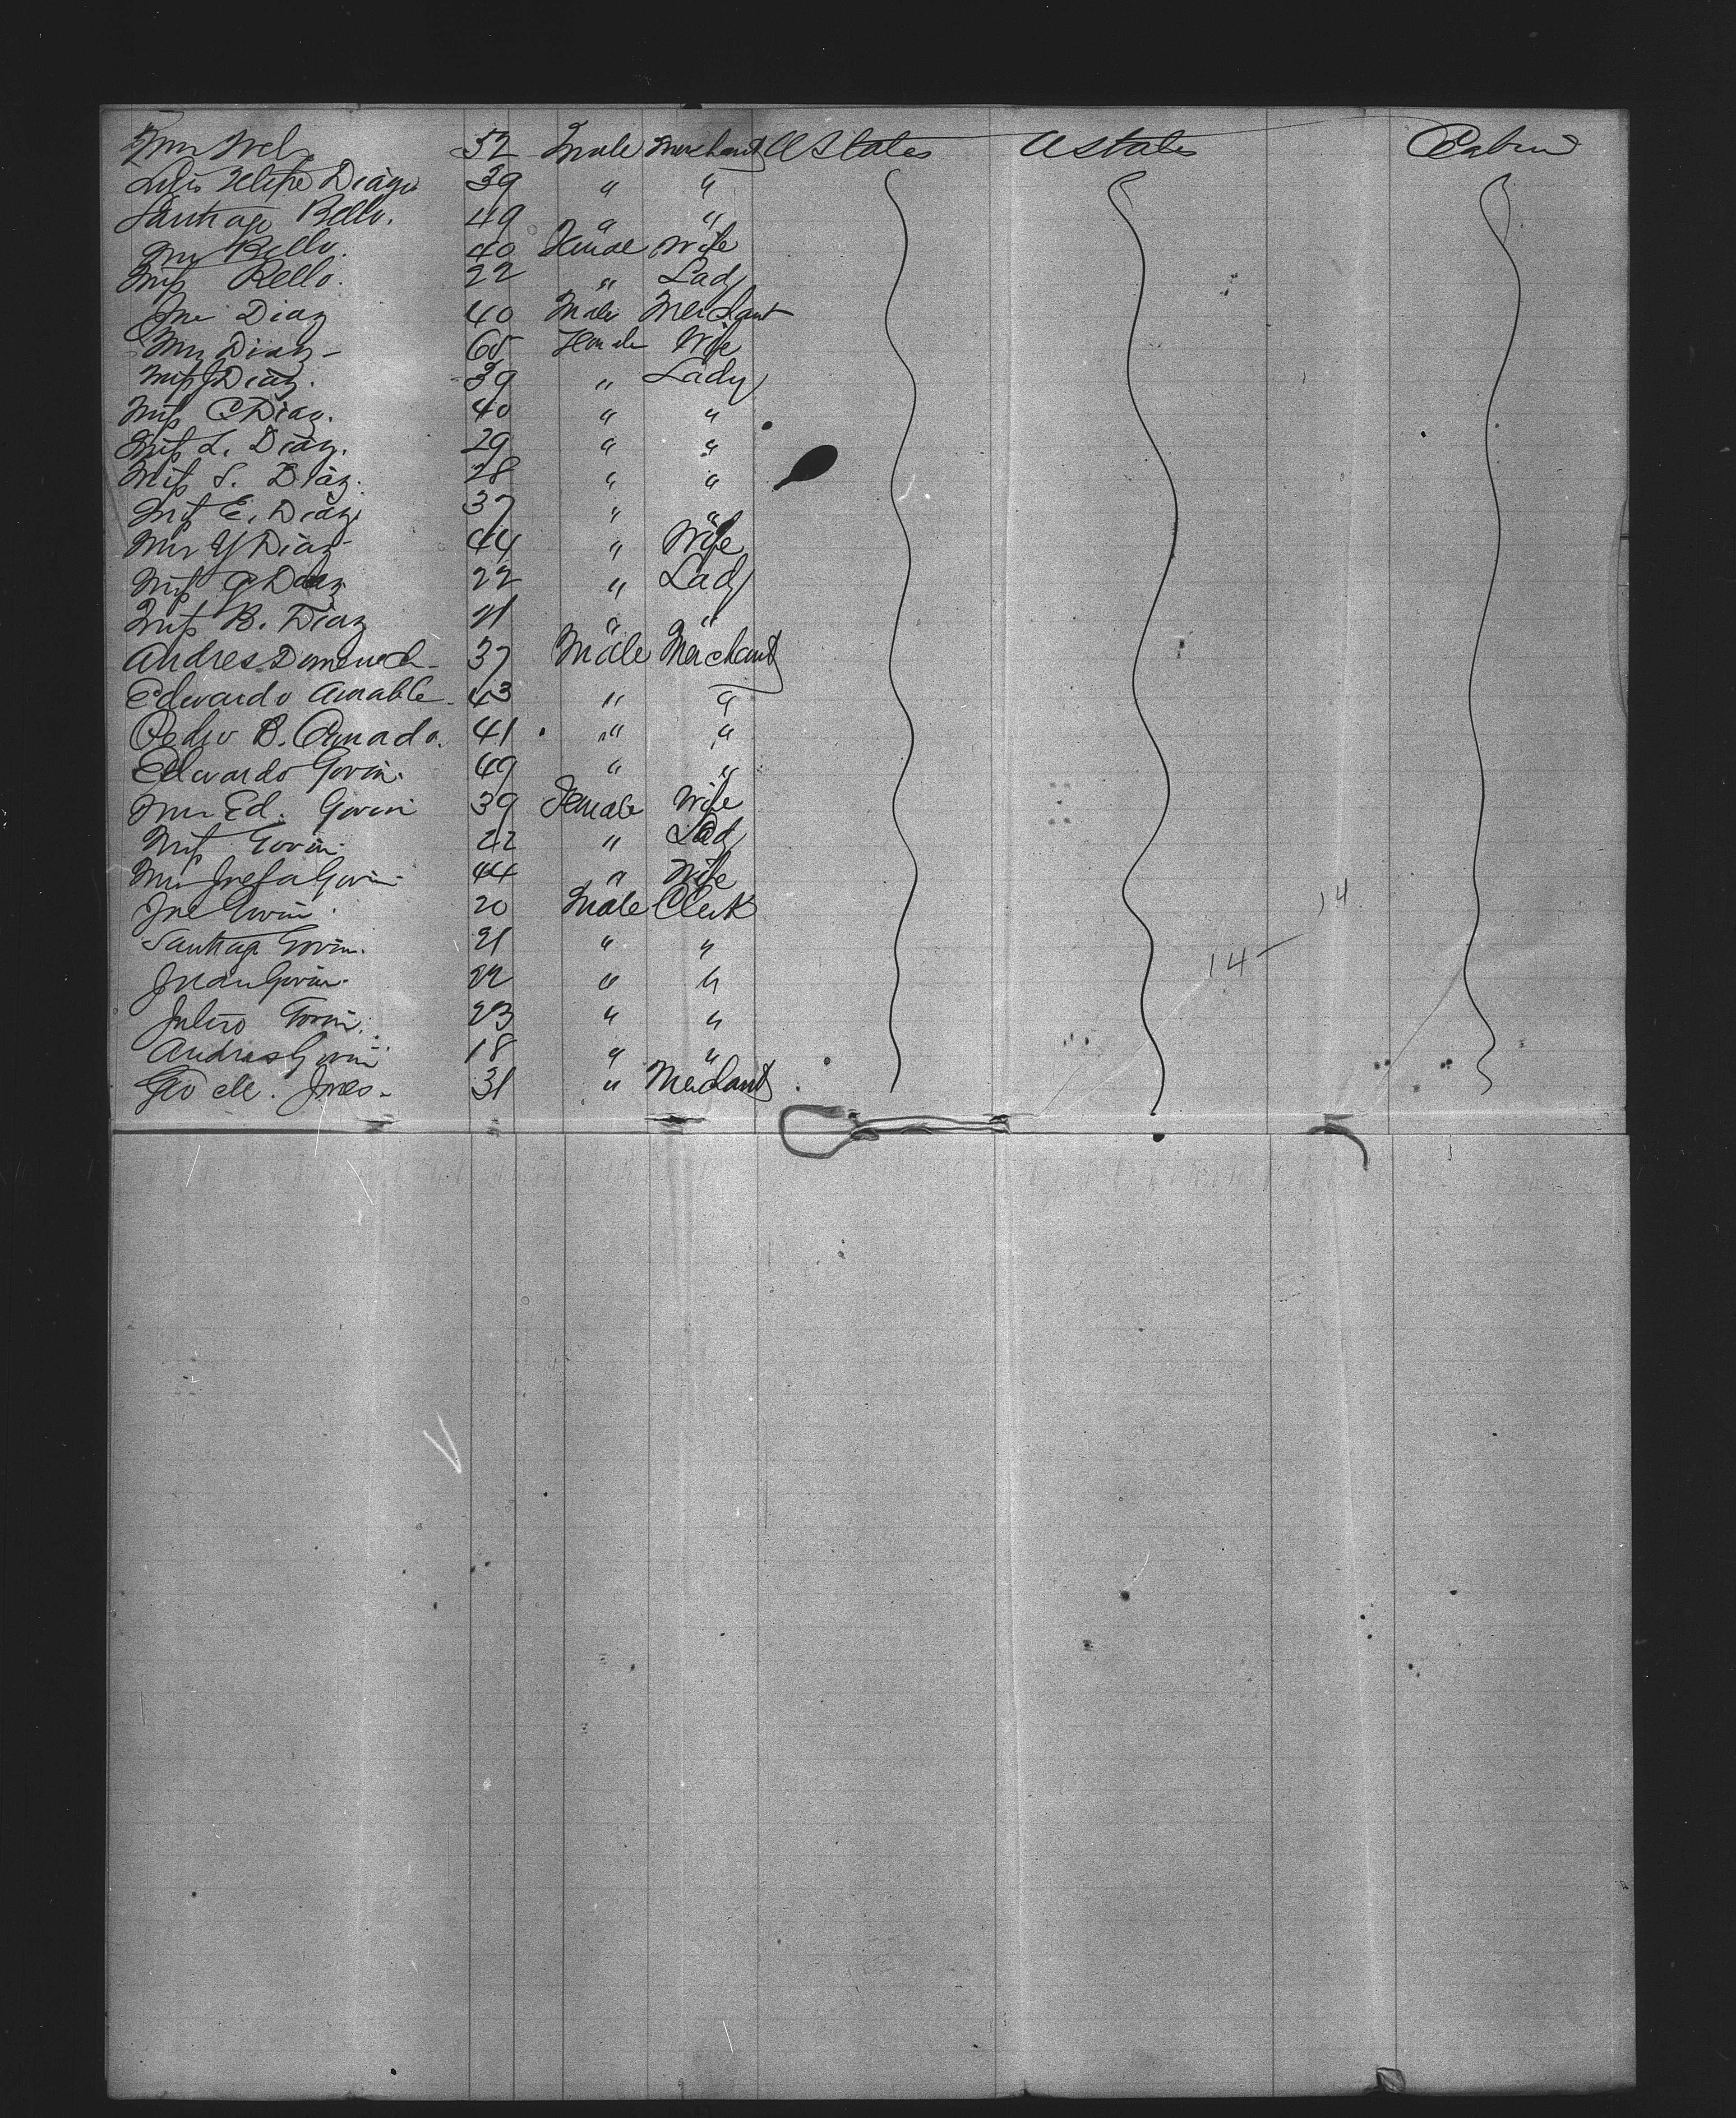 32 Male Merchant U States U States Cabin
Felipe Diaz 39 " "
Santiago Bello. 49 " "
Mrs Bello. 40 Female Wife
Miss Bello. 22 " Lady
Jne Diaz 40 Male Merchant
Mrs Diaz - 65 Female Wife
Miss J Diaz. 39 " Lady
Miss C Diaz. 40 " "
Miss L. Diaz. 29 " "
Miss S. Diaz. 28 " "
Miss E. Diaz 37 " "
Mrs Y Diaz 44 " Wife
Miss Diaz 22 " Lady
Miss B. Diaz 21 " "
Andres Domenech - 37 Male Merchant
Edwardo Amable - 43 " "
Pedro B. 41 " "
Edwardo Govin. 49 " "
Mrs Ed. Govin 39 Female Wife
Miss Govin 22 " Lady
Mrs Josefa Govin 44 " Wife
Jne Govin 20 Male Clerk
14
Santiago Govin. 21 " "
14 -
Juan Govin. 22 " "
Julio Govin. 23 " "
Andres Govin 18 " "
Geo M. Jones - 31 " Merchant